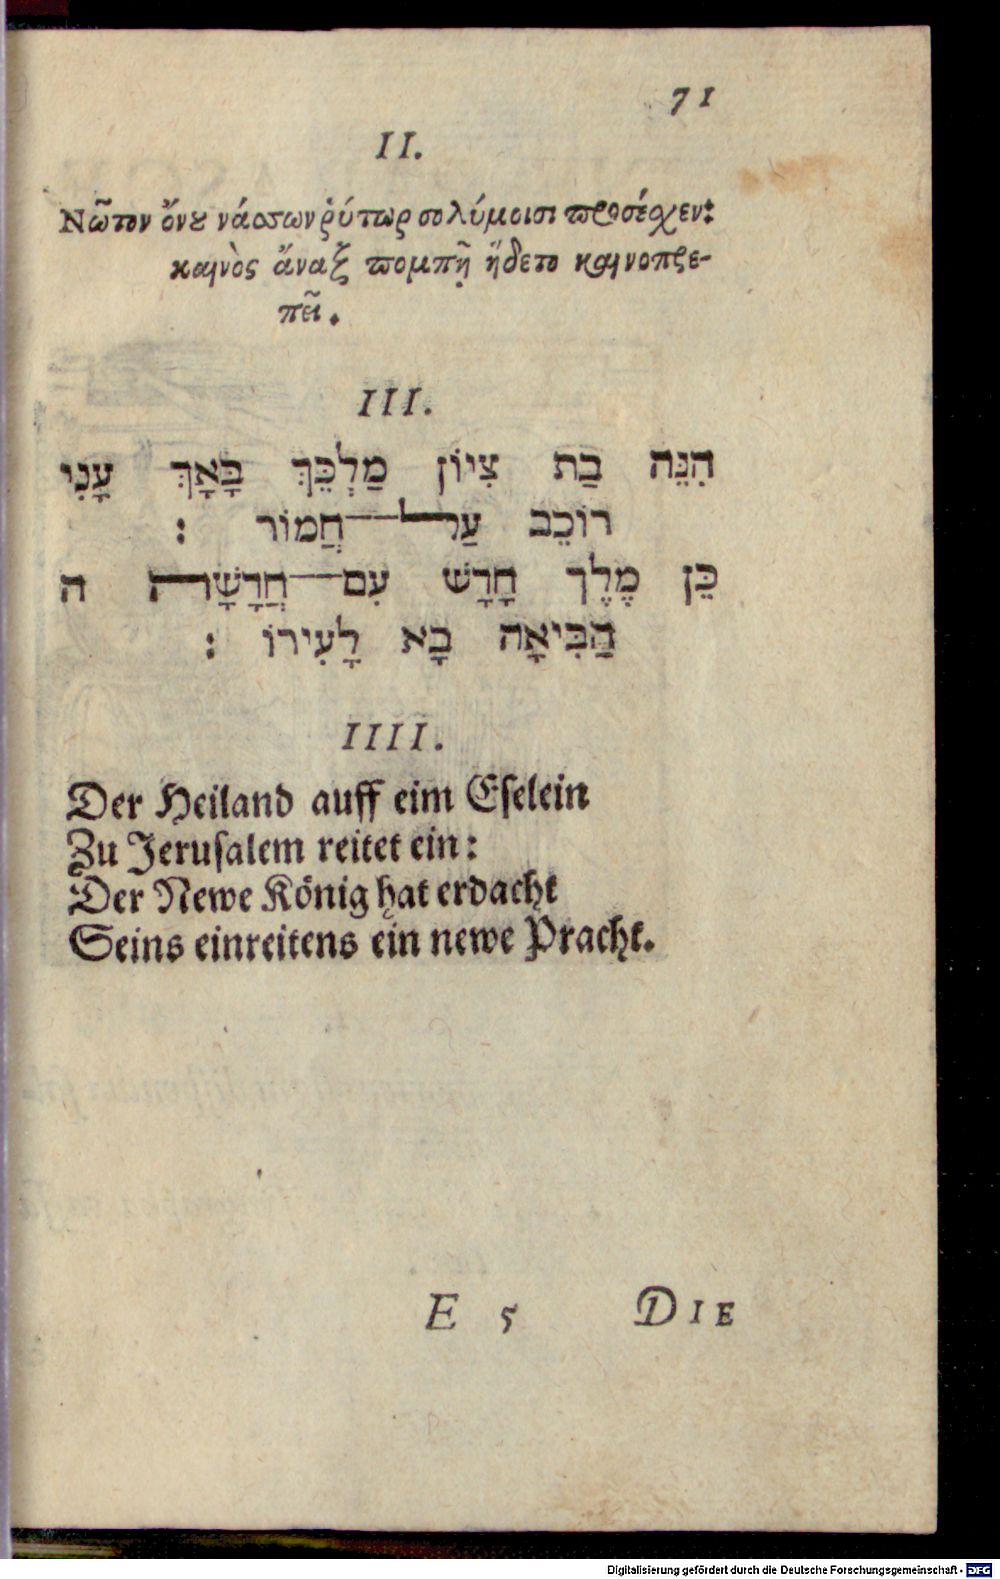 71
II.
Νῶτον ὄνου νάσσων ῥύτωρ σολύμοισι προσέσχεν:
καινὸς ἄναξ πομπῇ ἥδετο καινοπρε-
πεῖ.
III.
הִנֵּה בַת צִיוֹן מַלְכֵּךְ בָּאָךְ עָנִי
רוֹכֵב עַל חֲמוֹר :
כֵּן מֶלֶךְ חָדָשׁ עִם חֲדָשָׁה ה
הַבִּיאָה בָא לָעִירוֹ :
IIII.
Der Heiland auff eim Eselein
Zu Jerusalem reitet ein:
Der Newe König hat erdacht
Seins einreitens ein newe Pracht.
E 5 DIE
Digitalisierung gefördert durch die Deutsche Forschungsgemeinschaft - DFG